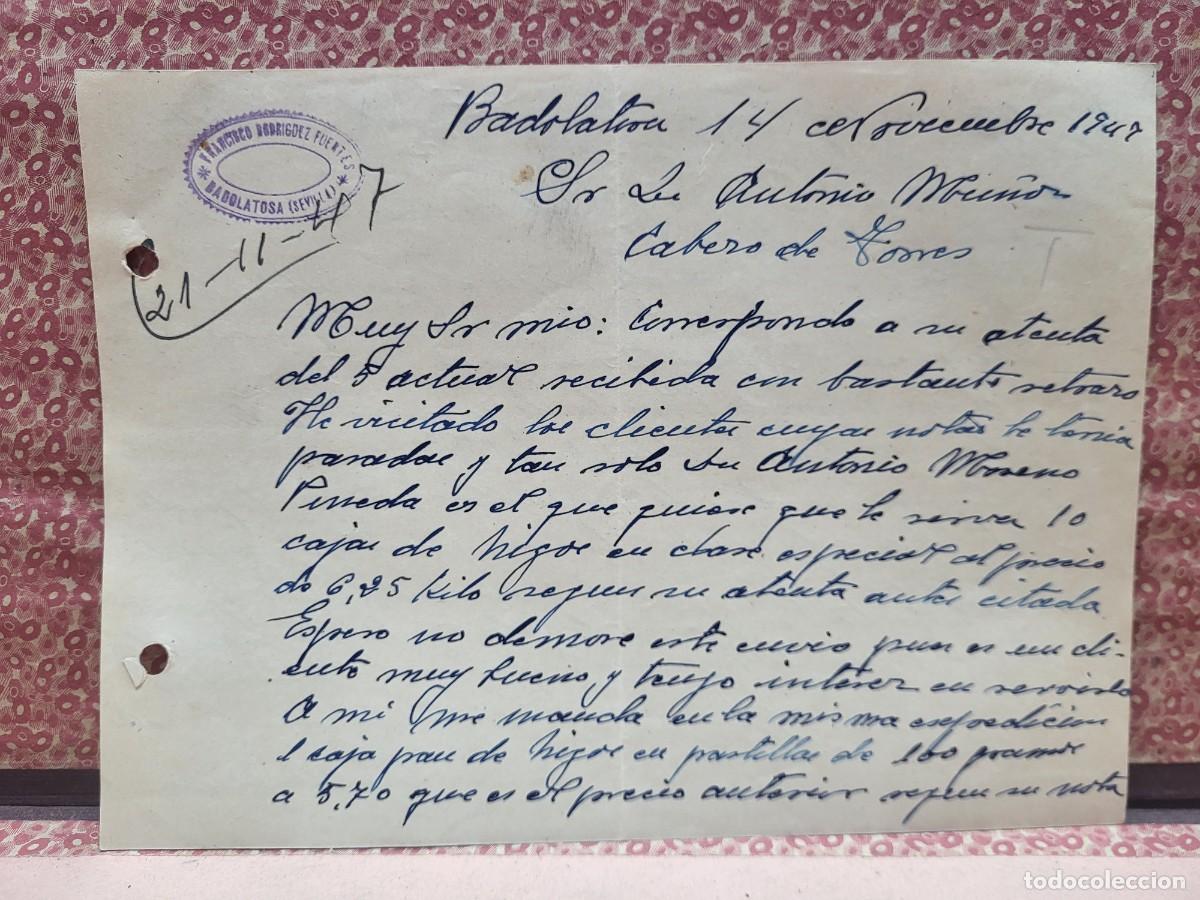 FRANCISCO RODRIGUEZ FUENTES
BADOLATOSA (SEVILLA)
21-11-47
Badolatosa 14 Noviembre 1947
Sr Dn Antonio Muños
Cabezo de Torres
Muy Sr mio: Correspondo a su atenta
del 5 actual recibida con bastante retraso
He visitado los clientes cuyas notas le tenia
pasadas y tan solo Dn Antonio Moreno
Pineda es el que quiere que le sirva 10
cajas de higos en clase especial al precio
de 6,25 Kilo segun su atenta antes citada
Espero no demore este envio pues es un cli-
ente muy bueno, y tengo interes en servirlo
A mi me manda en la misma expedicion
1 caja pan de higos en pastillas de 100 gramos
a 5,70 que es el precio anterior segun su nota
todocoleccion